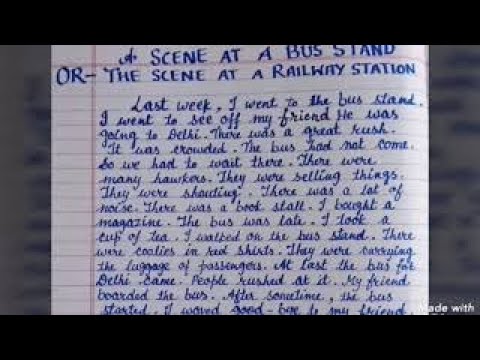 A SCENE AT A BUS STAND
OR- THE SCENE AT A RAILWAY STATION
Last week, I went to the bus stand.
I went to see off my friend He was
going to Delhi. There was a great rush.
It was crowded. The bus had not come.
So we had to wait there. There were
many hawkers. They were selling things.
They were shouting. There was a lot of
noise. There was a book stall. I bought a
magazine. The bus was late. I took a
cup of tea. I walked on the bus stand. There
were coolies in red shirts. They were carrying
the luggage of passengers. At last the bus for
Delhi came. People rushed at it. My friend
boarded the bus. After sometime, the bus
started. I waved good-bye to my friend.
Made with